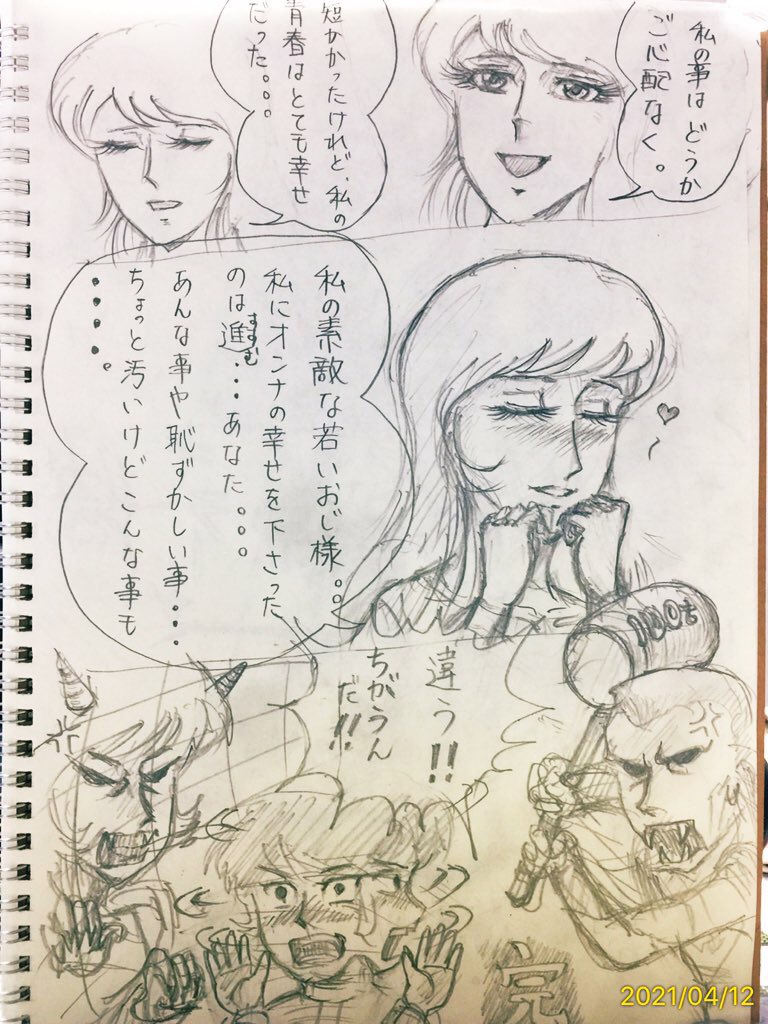 私の事は どうか
ご心配なく。
短かかったけれど、私の
青春はとても幸せ
だった。。。
私の素敵な若いおじ様。。
私にオンナの幸せを下さった
のは進・・・あなた。。。
すすむ
あんな事や恥ずかしい事・・・
ちょっと汚いけどこんな事も
・・・・。
違う!!
ちがうん
だ!!
完
2021/04/12